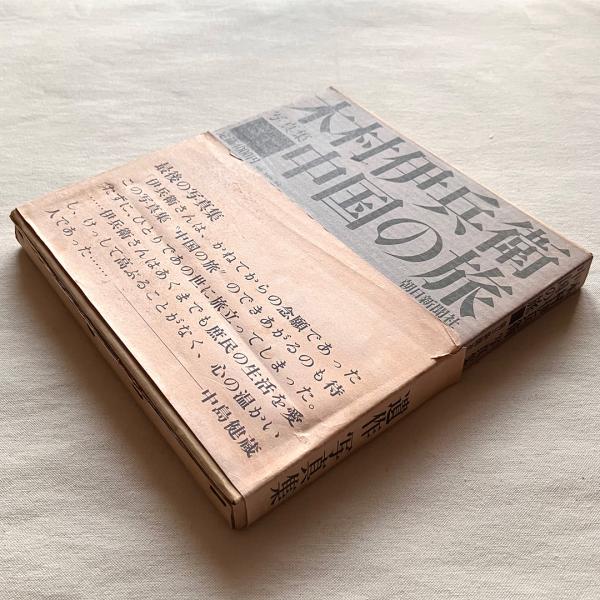 木村伊兵衛
写真集
中国の旅
朝日新聞社
最後の写真集
「伊兵衛さんは、かねてからの念願であった
この写真集〝中国の旅〟のできあがるのも待
たずに、ひとりであの世に旅立ってしまった。
……伊兵衛さんはあくまでも庶民の生活を愛
し、けっして高ぶることがなく、心の温かい
人であった……」
中島健蔵
遺作写真集